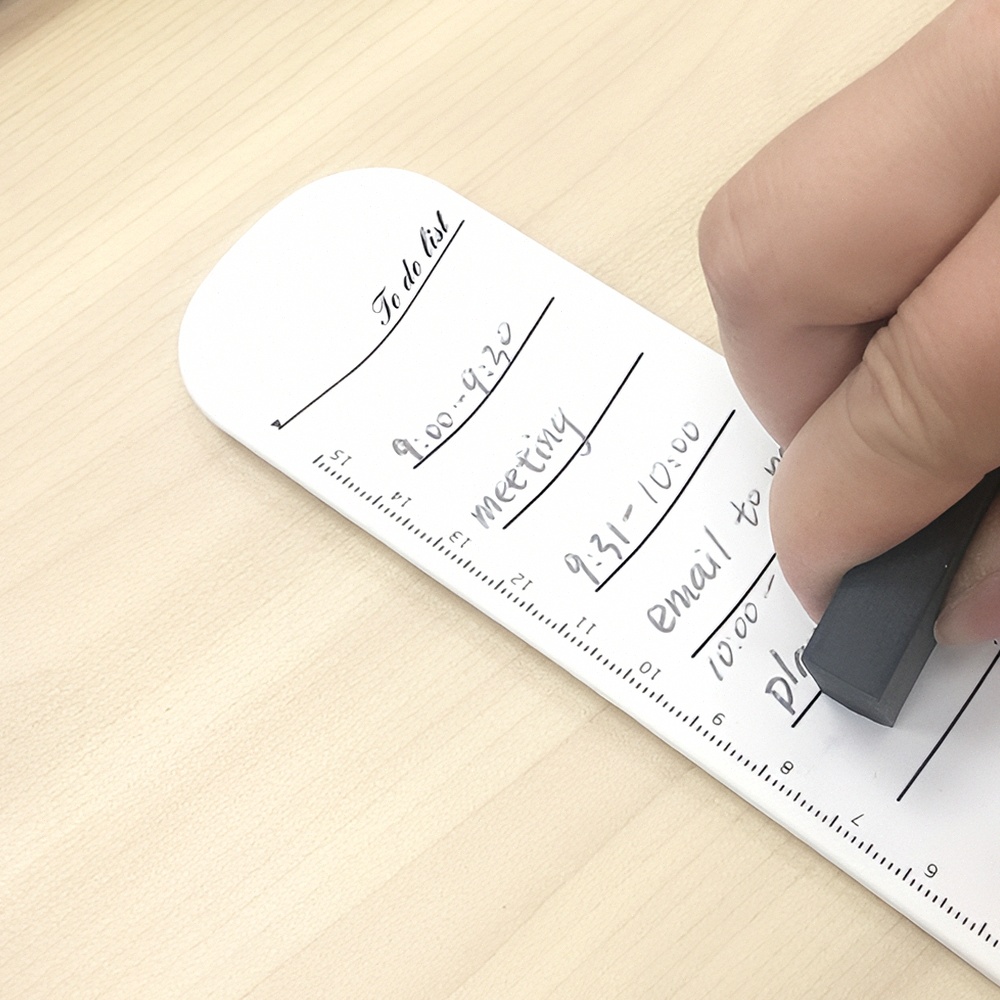 To do list
9:00-9:30
meeting
9:31-10:00
email to
10:00 -
15
14
13
12
11
10
9
8
7
6